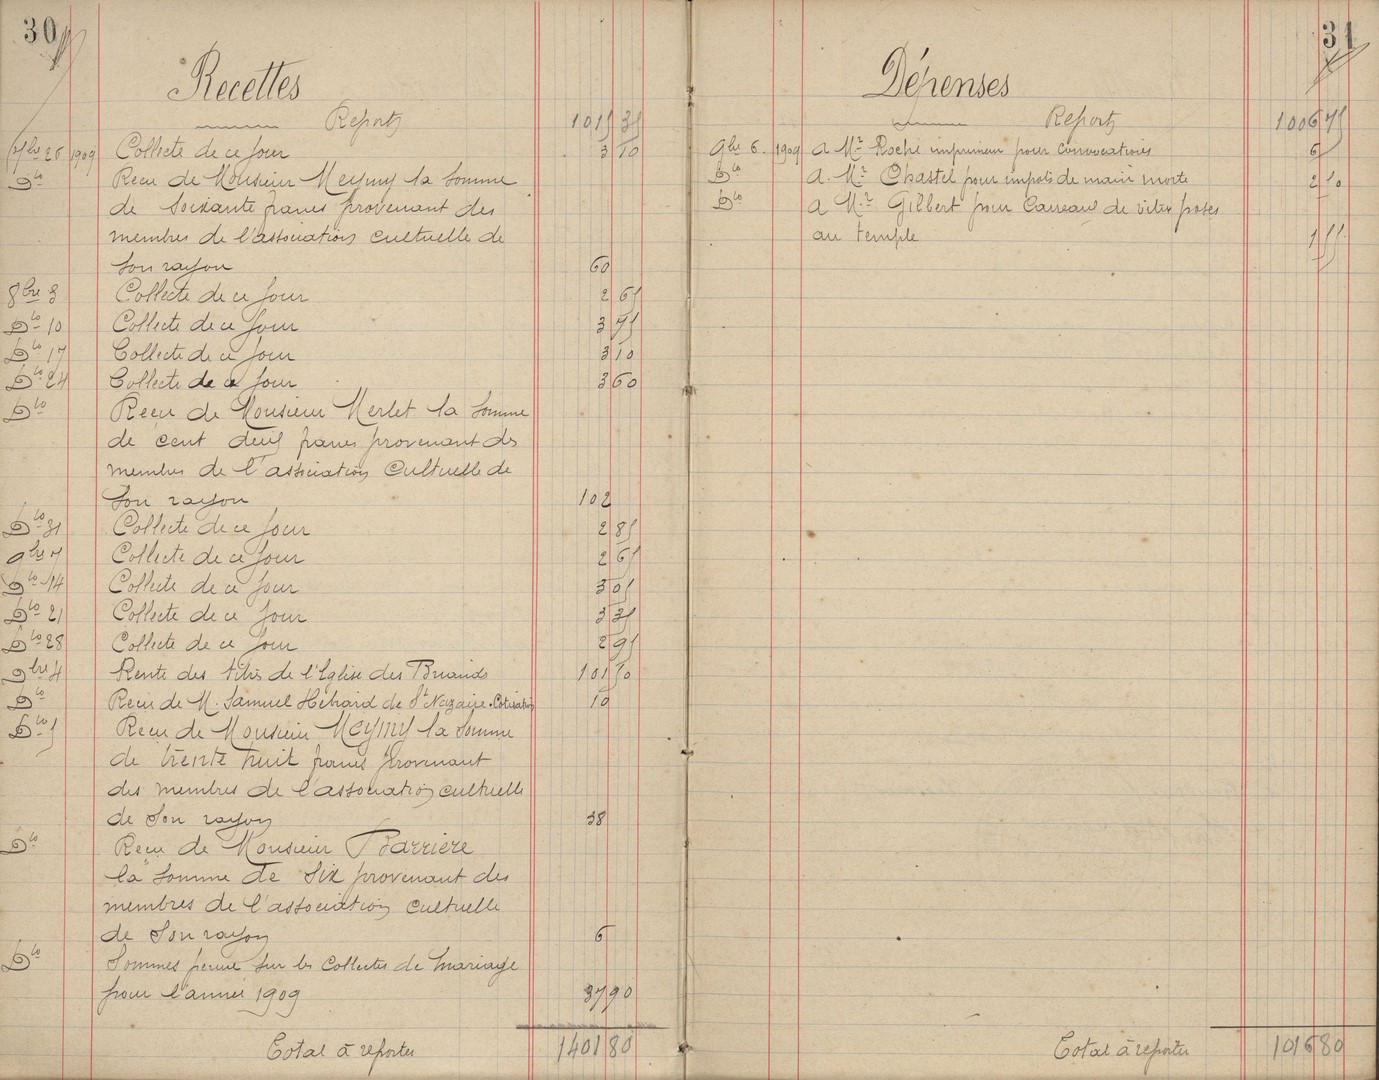 30
Recettes
Report 1015 35
7bre 26 1909 Collecte de ce Jour 3 10
Dto Recu de Monsieur Meymy la Somme
de Soixante francs provenant des
membres de l'association cultuelle de
Son rayon 60
8bre 3 Collecte de ce Jour 2 65
Dto 10 Collecte de ce Jour 3 75
Dto 17 Collecte de ce Jour 3 10
Dto 24 Collecte de ce Jour 3 60
Dto Recu de Monsieur Merlet la Somme
de cent deux francs provenant des
membres de l'association Cultuelle de
Son rayon 102
Dto 31 Collecte de ce Jour 2 85
9bre 7 Collecte de ce Jour 2 65
Dto 14 Collecte de ce Jour 3 05
Dto 21 Collecte de ce Jour 3 35
Dto 28 Collecte de ce Jour 2 95
Xbre 4 Rente des titres de l'Eglise des Briands 101 50
Dto Recu de M. Samuel Hebrard de St Nazaire. Cotisation 10
Dto 5 Recu de Monsieur Meymy la Somme
de trente huit francs provenant
des membres de l'association cultuelle
de Son rayon 38
Dto Recu de Monsieur Barrière
la Somme de Six provenant des
membres de l'association cultuelle
de Son rayon 6
Dto Sommes percue sur les Collectes de Mariage
pour l'année 1909 37 90
Total à reporter 1401 80
31
Dépenses
Report 1006 75
9bre 6. 1909 a Mr Roche imprimeur pour convocations 6
Dto a. Mr Chastel pour impots de main morte 2 50
Dto a Mr Gilbert pour Carreaux de vitre posés
au temple 1 55
Total à reporter 1016 80